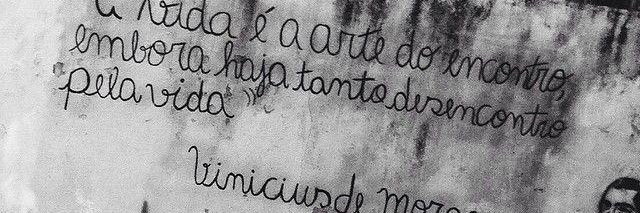 a vida é a arte do encontro,
embora haja tanto desencontro
pela vida"
Vinicius de Morae